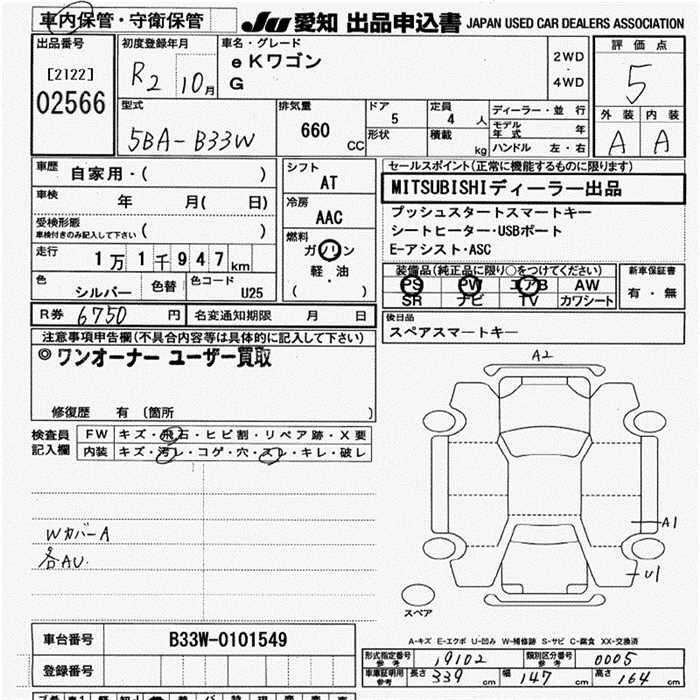 車内保管・守衛保管
JU 愛知 出品申込書 JAPAN USED CAR DEALERS ASSOCIATION
出品番号
[2122]
02566
初度登録年月
R2 10月
車名・グレード
eKワゴン
G
2WD
・
4WD
評価点
5
外装 内装
A A
型式
5BA-B33W
排気量
660
CC
ドア
5
形状
定員
4 人
積載
kg
ディーラー・並行
モデル年式 年
ハンドル 左・右
車歴
自家用・( )
車検
年 月( 日)
受検形態
車検付きのみ記入して下さい ( )
走行
1万1千947km
色
シルバー
色替
色コード
U25
シフト
AT
冷房
AAC
燃料
ガソリン
軽・油
( )
セールスポイント(正常に機能するものに限ります)
MITSUBISHIディーラー出品
プッシュスタートスマートキー
シートヒーター・USBポート
E-アシスト・ASC
装備品(純正品に限り○をつけてください)
PS PW エアB AW
SR ナビ TV カワシート
新車保証書
有・無
R券 6750 円
名変通知期限 月 日
後日品
スペアスマートキー
注意事項申告欄(不具合内容等は具体的に記入して下さい)
◎ワンオーナー ユーザー買取
修復歴 有 〔箇所 〕
検査員
記入欄
FW キズ・飛石・ヒビ割・リペア跡・X要
内装 キズ・汚レ・コゲ・穴・スレ・キレ・破レ
WカバーA
各AU.
A2
A1
U1
スペア
A-キズ E-エクボ U-凹み W-補修跡 S-サビ C-腐食 XX-交換済
車台番号
B33W-0101549
登録番号
形式指定番号
参考
19102
類別区分番号
参考
0005
車庫証明用
参考
長さ 339 cm 幅 147 cm 高さ 164 cm